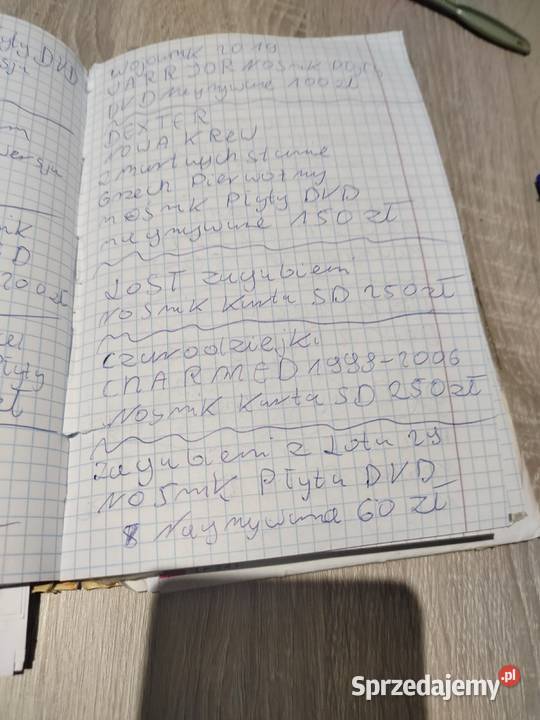 płyty DVD
wersja
Wojownik 2019
WARRIOR Nośnik płyty
DVD Nagrywane 100 zł
DEXTER
NOWA KREW
zmartwychstanie
Grzech Pierworodny
Nośnik Płyty DVD
nagrywane 150 zł
200 zł
LOST zagubieni
Nośnik Karta SD 250 zł
Płyty
zł
Czarodziejki
CHARMED 1998-2006
Nośnik Karta SD 250 zł
Zagubieni z Lotu 29
NOŚNIK Płyta DVD
Nagrywana 60 zł
Sprzedajemy.pl